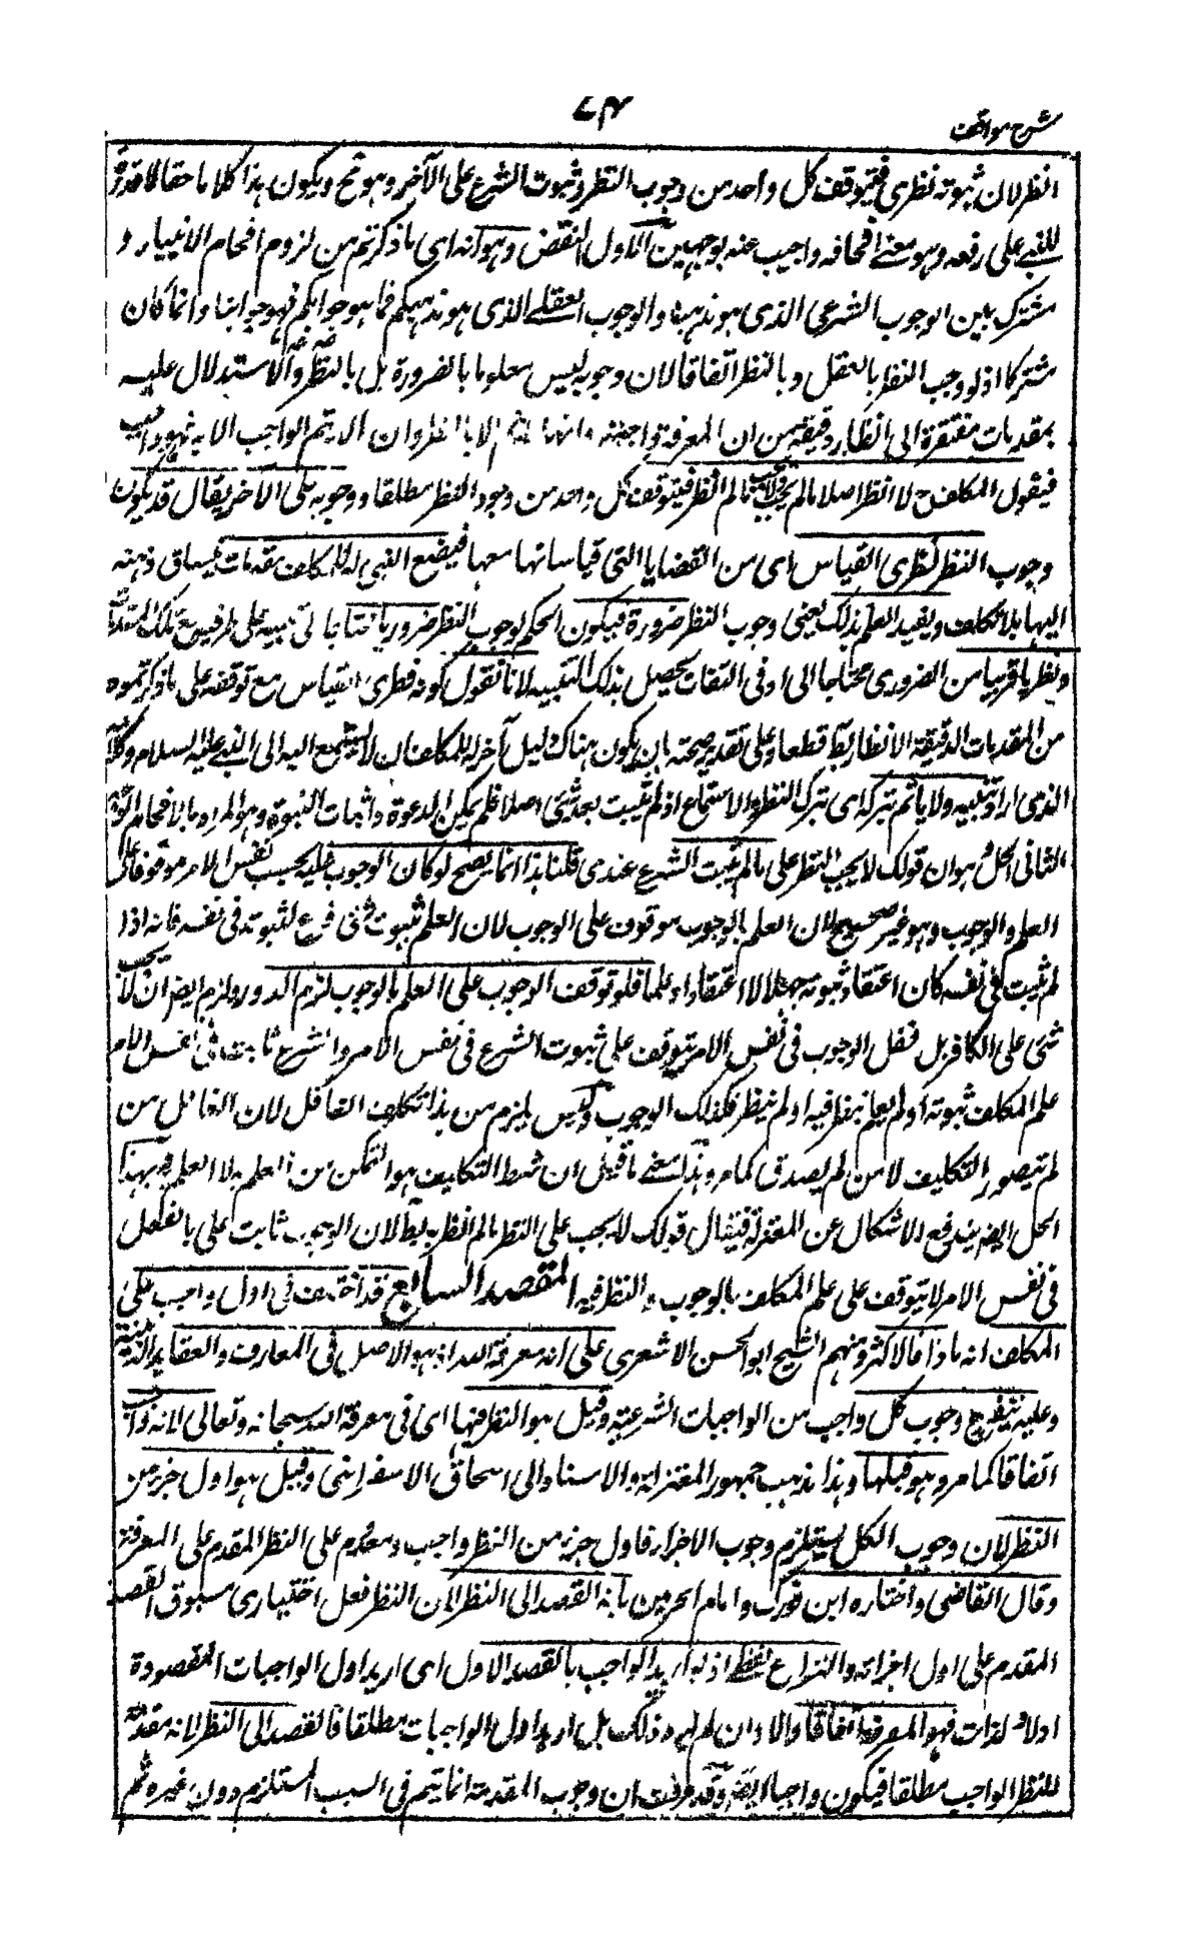 ٧٤
شرح مواقف
انظر لان ثبوته نظري فيتوقف كل واحد من وجوب النظر وثبوت الشرع على الآخر وهو مح ويكون هذا كلاما حقا لا قدرة
للنبي على دفعه وهو معنى افحامه واجيب عنه بوجهين الاول النقض وهو انه اى ما ذكرتم من لزوم افحام الانبياء
مشترك بين الوجوب الشرعي الذى هو مذهبنا والوجوب العقلي الذى هو مذهبكم فما هو جوابكم فهو جوابنا وانما كان
مشتركا اذ لو وجب النظر بالعقل فبالنظر اتفاقا لان وجوبه ليس معلوما بالضرورة بل بالنظر والاستدلال عليه
بمقدمات مفتقرة الى انظار دقيقة من ان المعرفة واجبة وانها لا تتم الا بالنظر وان ما لا يتم الواجب الا به فهو واجب
فيقول المكلف ح لا انظر اصلا ما لم يجب ولا يجب ما لم انظر فيتوقف كل واحد من وجود النظر مطلقا ووجوبه على الآخر لا يقال قد يكون
وجوب النظر فطرى القياس اى من القضايا التى قياساتها معها فيضع النبي له للمكلف مقدمات ينساق ذهنه
اليها بلا تكلف ويفيد العلم بذلك يعنى وجوب النظر ضرورة فيكون الحكم بوجوب النظر ضروريا محتاجا الى تنبيه على طرفيه مع تلك المقدمات
ونظريا قريبا من الضرورى محتاجا الى ادنى التفات يحصل بذلك التنبيه لانا نقول كونه فطرى القياس مع توقفه على ما ذكرتموه
من المقدمات الدقيقة الانظار بط قطعا وعلى تقدير صحته بان يكون هناك دليل آخر للمكلف ان لا يستمع اليه الى النبي عليه السلام وكلامه
الذى اراد تنبيهه ولا ياثم بتركه اى بترك النظر والاستماع اذ لم يثبت بعد شئ اصلا فلم يمكن الدعوة واثبات النبوة وهو المراد بالافحام الوجه
الثانى الحل وهو ان قولك لا يجب النظر على ما لم يثبت الشرع عندى قلنا هذا انما يصح لو كان الوجوب عليه بحسب نفس الامر موقوفا على
العلم بالوجوب وهو غير صحيح لان العلم بالوجوب موقوف على الوجوب لان العلم بثبوت شئ فرع لثبوته فى نفسه فانه اذا
لم يثبت فى نفسه كان اعتقاد ثبوته جهلا لا علما فلو توقف الوجوب على العلم بالوجوب لزم الدور ولزم ايضا ان لا يجب
شئ على الكافر بل نقول الوجوب فى نفس الامر يتوقف على ثبوت الشرع فى نفس الامر والشرع ثابت فى نفس الامر
علم المكلف ثبوته او لم يعلم نظر فيه او لم ينظر فكذلك الوجوب وليس يلزم من هذا تكليف الغافل لان الغافل من
لم يتصور التكليف لا من لم يصدق كما مر وهذا معنى ما قيل ان شرط التكليف هو التمكن من العلم به لا العلم به وبهذا
الحل ايضا يندفع الاشكال عن المعتزلة فيقال قولك لا يجب على النظر ما لم انظر بط لان الوجوب ثابت على بالعقل
فى نفس الامر لا يتوقف على علم المكلف بالوجوب والنظر فيه المقصد السابع قد اختلف فى اول واجب على
المكلف انه ماذا فالاكثر ومنهم الشيخ ابو الحسن الاشعرى على انه معرفة الله اذ هو الاصل فى المعارف والعقايد الدينية
وعليه يتفرع وجوب كل واجب من الواجبات الشرعية وقيل هو النظر فيها اى فى معرفة الله سبحانه وتعالى لانه واجب
اتفاقا كما مر وهو قبلها وهذا مذهب جمهور المعتزلة والاستاد ابى اسحاق الاسفراينى وقيل هو اول جزء من
النظر لان وجوب الكل يستلزم وجوب الاجزاء فاول جزء من النظر واجب ومقدم على النظر المقدم على المعرفة
وقال القاضى واختاره ابن فورك وامام الحرمين انه القصد الى النظر لان النظر فعل اختيارى مسبوق بالقصد
المقدم على اول اجزائه والنزاع لفظى اذ لو اريد الواجب بالقصد الاول اى اريد اول الواجبات المقصودة
اولا وبالذات فهو المعرفة اتفاقا والا وان لم يرد ذلك بل اريد اول الواجبات مطلقا فالقصد الى النظر لانه مقدمة
للنظر الواجب مطلقا فيكون واجبا ايضا وقد عرفت ان وجوب المقدمة انما يتم فى السبب المستلزم دون غيره ثم